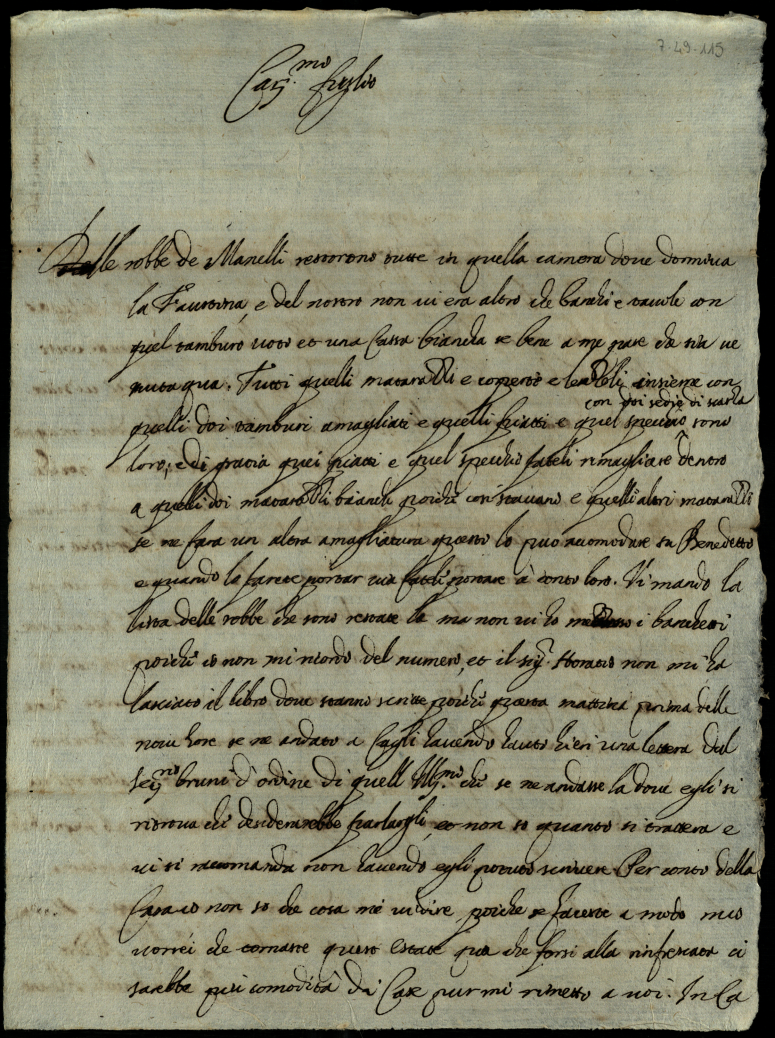 7-49-115
Car.mo figlio
Delle robbe de Manelli restorono tutte in quella camera dove dormiva
la Faustina, e del nostro non vi era altro che banchi e tavole con
quel tamburo voto et una Cassa biancha se bene a me pare che sia ve
nuta qua. Tutti quelli matarazzi e coperte e lenzoli insieme con
con doi sedie di scarla
quelli doi tamburi amagliati e quelli piatti e quel spechio sono
loro, e di gratia quei piatti e quel spechio fateli rimagliare dentro
a quelli doi matarazzi bianchi poiche cosi stavano e quelli altri matarazzi
se ne fara un altra amagliatura questo lo può accomodare Benedetto
e quando le farete portar via fateli portare à conto loro. Vi mando la
lista delle robbe che sono restate le ma non vi ho messo i banchetti
poiche io non mi ricordo del numero, et il sig.r Horatio non mi ha
lasciato il libro dove stanno scritte poiche questa mattina prima delle
nove hore se ne andato a Cagli havendo hauto hieri una lettera dal
bruni d'ordine di quell Ill.mo che se ne andasse la dove egli si
ritrova che desiderarebbe parlargli, et non so quanto si trattera e
vi si racomanda non havendo egli potuto scrivere Per conto della
Casa io non so che cosa me vi dire, poiche se faceste a modo mio
vorrei che tornaste questo estate qua che forsi alla rinfrescata ci
sarebbe più comodità di Case pur mi rimetto a voi. In Ca